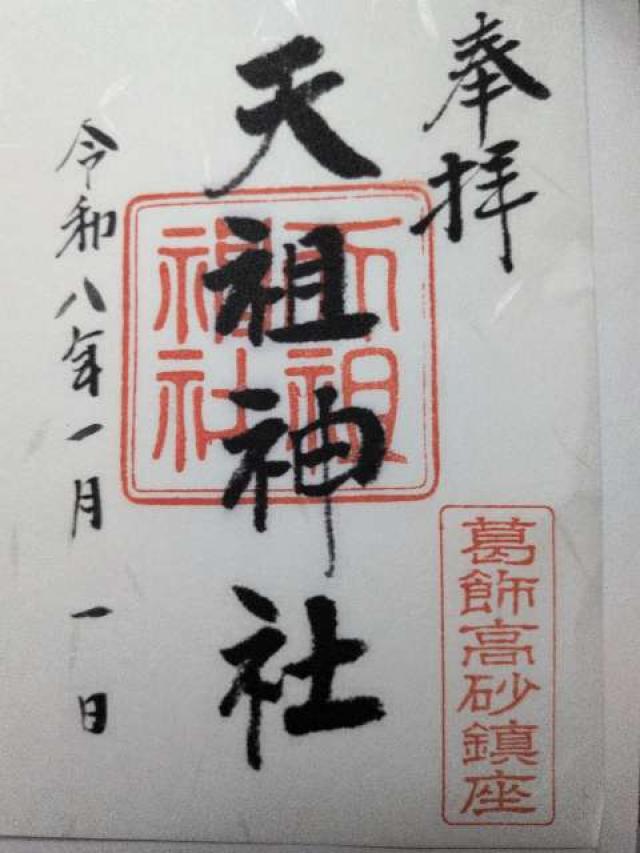 奉拝
天祖神社
天祖神社
葛飾高砂鎮座
令和八年一月一日